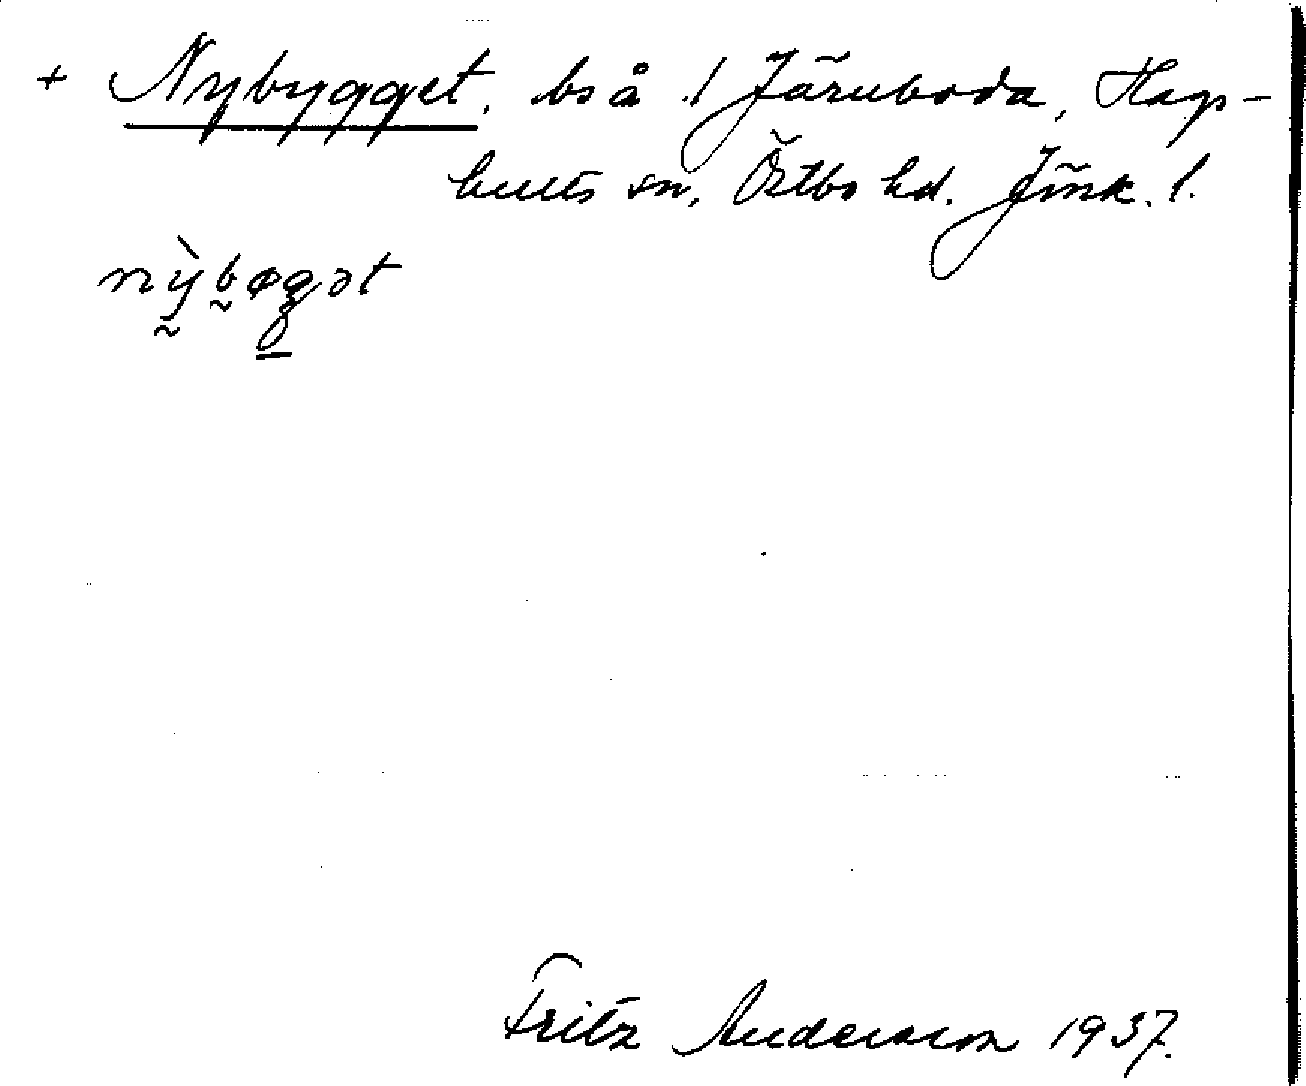 + Nybygget, bs å /Järnboda, Hag-
hults sn, Östbo hd. Jönk. l.
nỳbøgət
Fritz Andersson 1937.